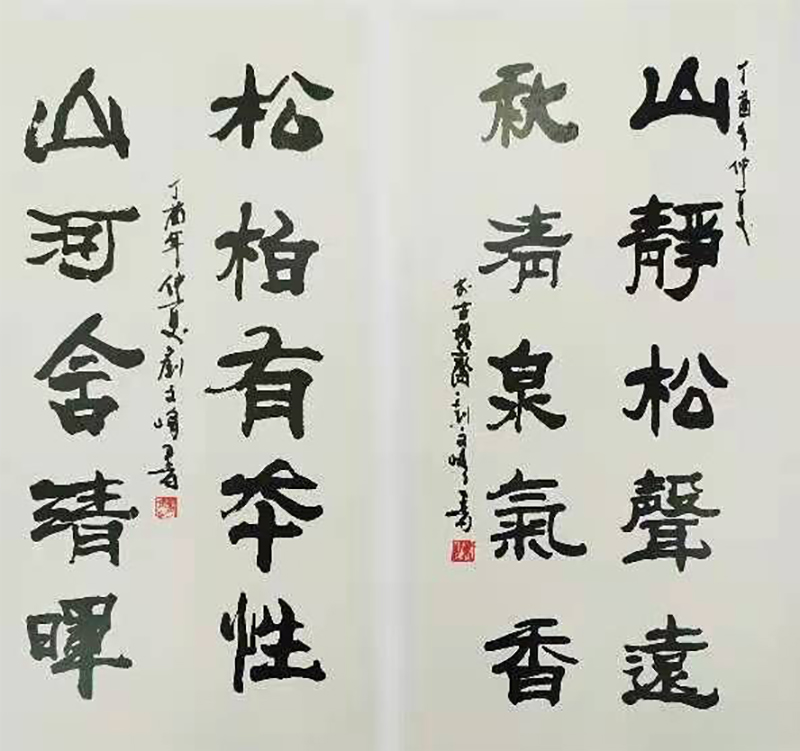 丁酉年仲夏
山靜松聲遠
秋清泉氣香
於古槐齋劉文峰書
松柏有本性
丁酉年仲夏劉文峰書
山河含清暉